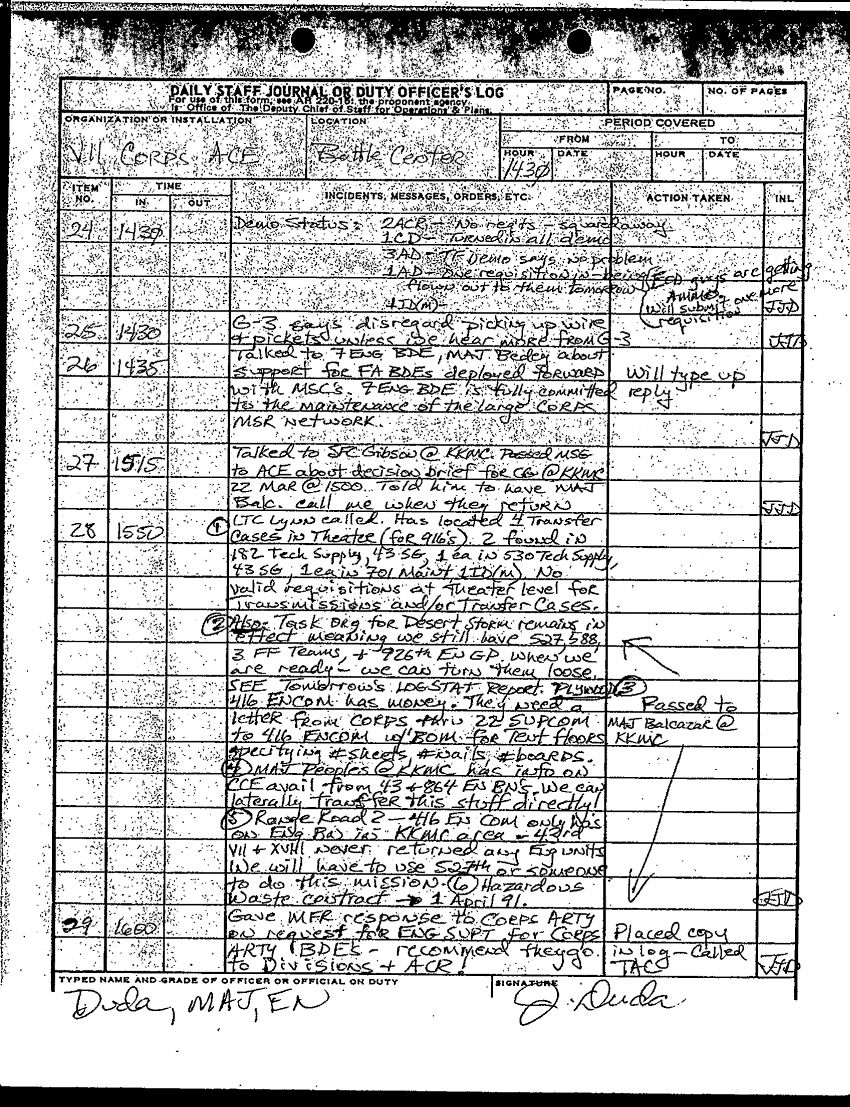 DAILY STAFF JOURNAL OR DUTY OFFICER'S LOG
For use of this form, see AR 220-15; the proponent agency
is Office of The Deputy Chief of Staff for Operations & Plans.
PAGE NO.
NO. OF PAGES
ORGANIZATION OR INSTALLATION
VII CORPS ACE
LOCATION
Battle Center
PERIOD COVERED
FROM
TO
HOUR
DATE
HOUR
DATE
1430
ITEM NO.
TIME
IN
OUT
INCIDENTS, MESSAGES, ORDERS, ETC.
ACTION TAKEN
INL
24 1430 Demo Status: 2ACR - No reqts - squared away
1CD - Turned in all demo
3AD - TF Demo says no problem
1AD - one requisition in - being
flown out to them tomorrow
guys are getting
Ammo
Will submit one more
requisition
1ID(M) - JJD
25 1430 G-3 says disregard picking up wire
+ pickets unless we hear more from G-3 JJD
26 1435 Talked to 7 ENG BDE, MAJ Bedey about
support for FA BDEs deployed forward Will type up
with MSC's. 7 ENG BDE is fully committed reply
to the maintenance of the large CORPS
MSR Network. JJD
27 1515 Talked to SFC Gibson @ KKMC. Passed MSG
to ACE about decision brief for CG @ KKMC
22 MAR @ 1500. Told him to have MAJ
Balc. call me when they return JJD
28 1550 ① LTC Lynn called. Has located 4 Transfer
Cases in Theater (for 916's). 2 found in
182 Tech Supply, 43 SG, 1 ea in 530 Tech Supply,
43 SG, 1 ea in 701 Maint 1ID(M). No
valid requisitions at theater level for
Transmissions and/or Transfer Cases.
② Also: Task Org for Desert Storm remains in
effect meaning we still have 527, 588,
3 FF Teams, + 926th EN GP. when we
are ready - we can turn them loose.
SEE Tomorrow's LOGSTAT Report. Plywood ③
416 ENCOM has money. They need a Passed to
letter from CORPS thru 22 SUPCOM MAJ Balcazar @
to 416 ENCOM w/ BOM for Tent floors KKMC
specifying # sheets, # nails, # boards.
④ MAJ Peoples @ KKMC has info on
CCE avail from 43 + 864 EN BNs. We can
laterally transfer this stuff directly!
⑤ Range Road 2 - 416 EN COM only has
on Eng Bn in KKMC area - 43rd
VII + XVIII never returned any Eng units
We will have to use 527th or someone
to do this mission. ⑥ Hazardous
Waste contract → 1 April 91. JJD
29 1600 Gave MFR response to CORPS ARTY
on request for ENG SUPT for Corps Placed copy
ARTY BDEs - recommend they go in log - Called
to Divisions + ACR! TAC JJD
TYPED NAME AND GRADE OF OFFICER OR OFFICIAL ON DUTY
Duda, MAJ, EN
SIGNATURE
J. Duda